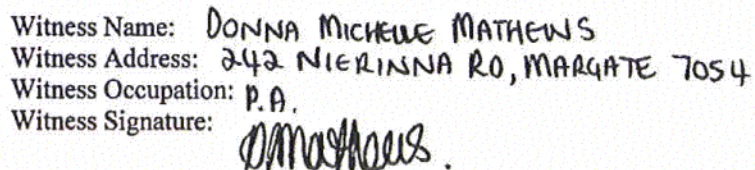 Witness Name: DONNA MICHELLE MATHEWS
Witness Address: 242 NIERINNA RD, MARGATE 7054
Witness Occupation: P.A.
Witness Signature: DMathews.